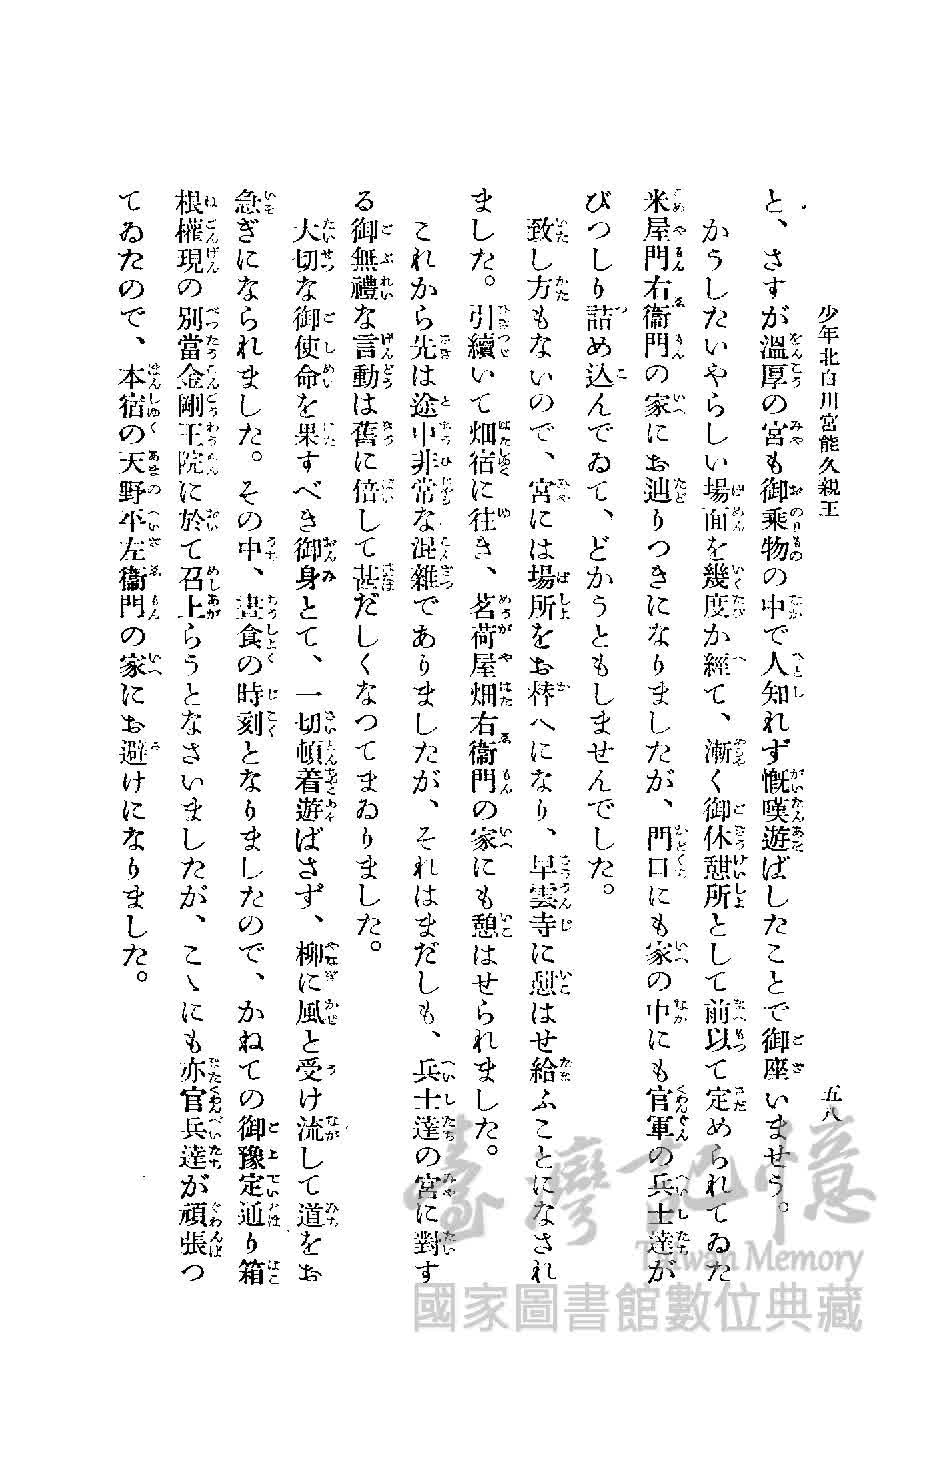 少年北白川宮能久親王
五八
と、さすが溫厚の宮も御乘物の中で人知れず慨嘆遊ばしたことで御座いませう。
かうしたいやらしい場面を幾度か經て、漸く御休憩所として前以て定められてゐた
米屋門右衞門の家にお辿りつきになりましたが、門口にも家の中にも官軍の兵士達が
びつしり詰め込んでゐて、どかうともしませんでした。
致し方もないので、宮には場所をお替へになり、早雲寺に憩はせ給ふことになされ
ました。引續いて畑宿に往き、茗荷屋畑右衞門の家にも憩はせられました。
これから先は途中非常な混雜でありましたが、それはまだしも、兵士達の宮に對す
る御無禮な言動は舊に倍して甚だしくなつてまゐりました。
大切な御使命を果すべき御身とて、一切頓着遊ばさず、柳に風と受け流して道をお
急ぎになられました。その中、晝食の時刻となりましたので、かねての御豫定通り箱
根權現の別當金剛王院に於て召上らうとなさいましたが、こゝにも亦官兵達が頑張つ
てゐたので、本宿の天野平左衞門の家にお避けになりました。
臺灣記憶
Taiwan Memory
國家圖書館數位典藏